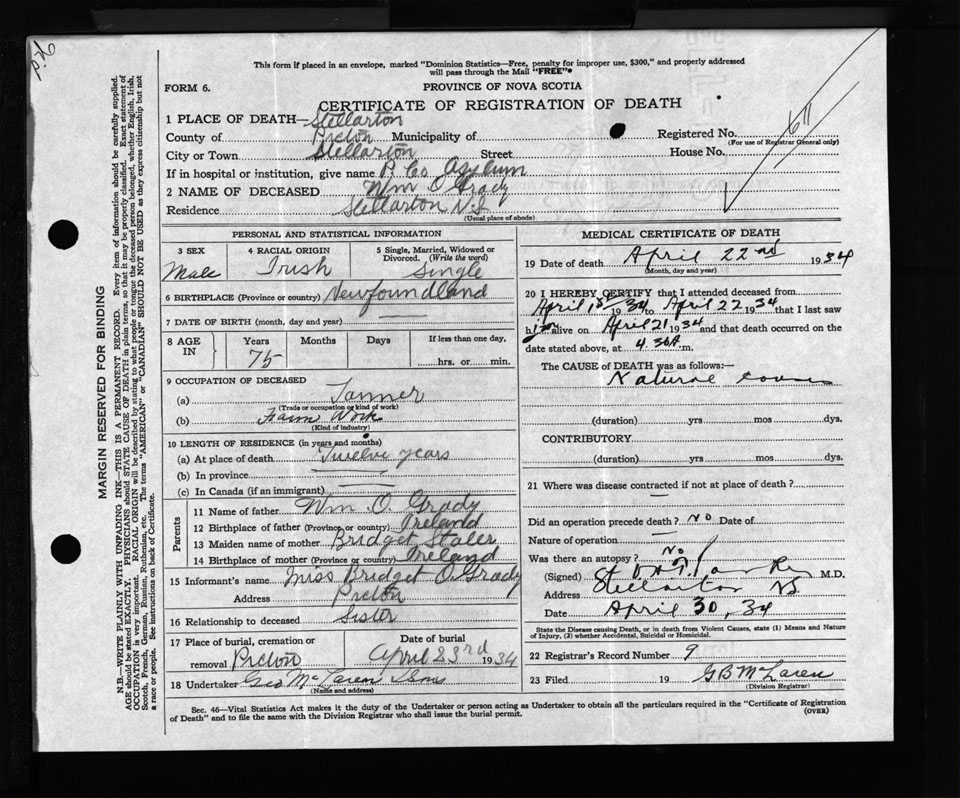 This form if placed in an envelope, marked "Dominion Statistics—Free, penalty for improper use, $300," and properly addressed
will pass through the Mail "FREE"
FORM 6.
PROVINCE OF NOVA SCOTIA
CERTIFICATE OF REGISTRATION OF DEATH
1 PLACE OF DEATH— Stellarton
County of Pictou Municipality of
Registered No. 611
(For use of Registrar General only)
City or Town Stellarton Street House No.
If in hospital or institution, give name P. Co Asylum
2 NAME OF DECEASED Wm O Grady
Residence Stellarton N.S
(Usual place of abode)
PERSONAL AND STATISTICAL INFORMATION
3 SEX 4 RACIAL ORIGIN 5 Single, Married, Widowed or
Divorced. (Write the word)
Male Irish Single
6 BIRTHPLACE (Province or country) Newfoundland
7 DATE OF BIRTH (month, day and year) —
8 AGE IN Years Months Days If less than one day,
75 hrs. or min.
9 OCCUPATION OF DECEASED
(a) Tanner
(Trade or occupation or kind of work)
(b) Farm Work
(Kind of industry)
10 LENGTH OF RESIDENCE (in years and months)
(a) At place of death Twelve years
(b) In province —
(c) In Canada (if an immigrant) —
Parents
11 Name of father Wm. O. Grady
12 Birthplace of father (Province or country) Ireland
13 Maiden name of mother Bridget
14 Birthplace of mother (Province or country) Ireland
15 Informant's name Miss Bridget O. Grady
Address Pictou
16 Relationship to deceased Sister
17 Place of burial, cremation or Date of burial
removal Pictou April 23rd 1934
18 Undertaker Geo McLaren & Sons
(Name and address)
MEDICAL CERTIFICATE OF DEATH
19 Date of death April 22nd 1934
(Month, day and year)
20 I HEREBY CERTIFY that I attended deceased from
April 1st 1934 to April 22 1934 that I last saw
him alive on April 21 1934 and that death occurred on the
date stated above, at 4.30A m.
The CAUSE of DEATH was as follows:—
Natural causes
(duration) yrs mos dys.
CONTRIBUTORY
(duration) yrs mos dys.
21 Where was disease contracted if not at place of death?
Did an operation precede death? No Date of
Nature of operation —
Was there an autopsy? No
(Signed) M.D.
Address Stellarton NS.
Date April 30, 34
State the Disease causing Death, or in death from Violent Causes, state (1) Means and Nature
of Injury, (2) whether Accidental, Suicidal or Homicidal.
22 Registrar's Record Number 9
23 Filed 19 G B McLaren
(Division Registrar)
Sec. 46—Vital Statistics Act makes it the duty of the Undertaker or person acting as Undertaker to obtain all the particulars required in the "Certificate of Registration
of Death" and to file the same with the Division Registrar who shall issue the burial permit.
(OVER)
MARGIN RESERVED FOR BINDING
N.B.—WRITE PLAINLY WITH UNFADING INK—THIS IS A PERMANENT RECORD. Every item of information should be carefully supplied.
AGE should be stated EXACTLY. PHYSICIANS should STATE CAUSE OF DEATH in plain terms, so that it may be properly classified. Exact statement of
OCCUPATION is very important. RACIAL ORIGIN will be described by stating to what people or tongue the deceased person belonged, whether English, Irish,
Scotch, French, German, Russian, Ruthenian, etc. The terms "AMERICAN" or "CANADIAN" SHOULD NOT BE USED as they express citizenship but not
a race or people. See instructions on back of Certificate.